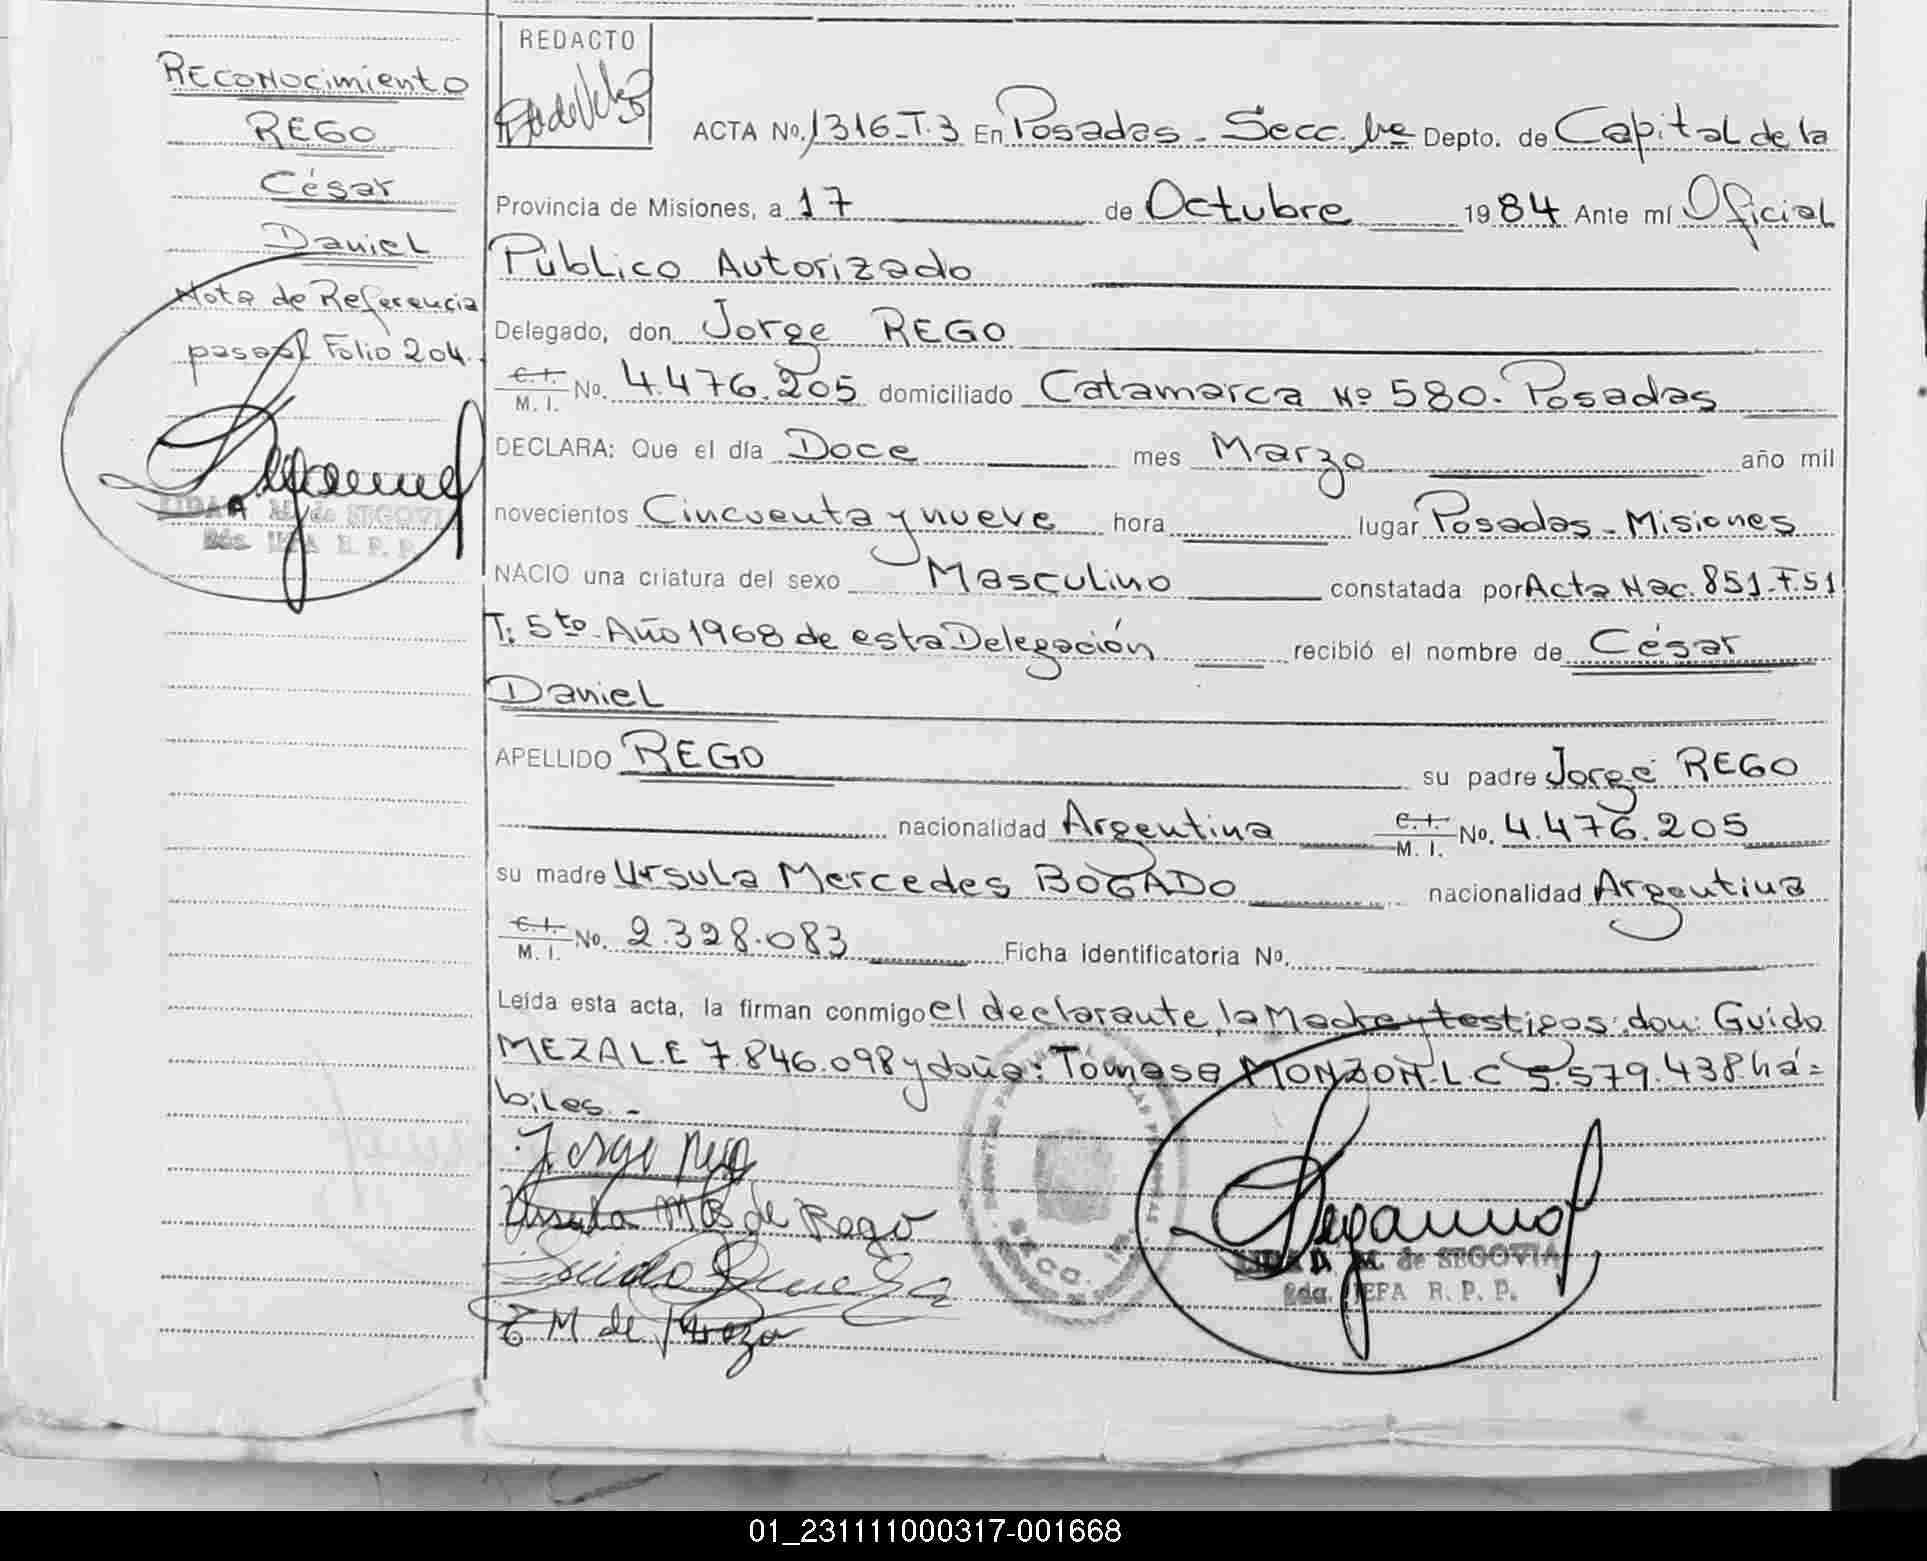 Reconocimiento
REGO
César
Daniel
Nota de Referencia
pasa al Folio 204.
LIDA A M. de SEGOVIA
2da. JEFA R. P. P.
REDACTO
ACTA No. 1316-T.3 En Posadas - Secc. 1ra Depto. de Capital de la
Provincia de Misiones, a 17 de Octubre 1984 Ante mí Oficial
Público Autorizado
Delegado, don Jorge REGO
C.I. M.I. No. 4.476.205 domiciliado Catamarca Nº 580. Posadas
DECLARA: Que el día Doce mes Marzo año mil
novecientos Cincuenta y nueve hora lugar Posadas - Misiones
NACIO una criatura del sexo Masculino constatada por Acta Nac. 851-F.51
T: 5to. Año 1968 de esta Delegación recibió el nombre de César
Daniel
APELLIDO REGO su padre Jorge REGO
nacionalidad Argentina C.I. M.I. No. 4.476.205
su madre Ursula Mercedes BOGADO nacionalidad Argentina
C.I. M.I. No. 2.328.083 Ficha identificatoria No.
Leída esta acta, la firman conmigo el declarante, la Madre y testigos: don: Guido
MEZA L.E 7.846.098 y doña: Tomasa MONZON-L C 5.579.438 há=
biles. -
Jorge Rego
Ursula M B de Rego
SECC. 1ª
LIDA A M. de SEGOVIA
2da. JEFA R. P. P.
01_231111000317-001668